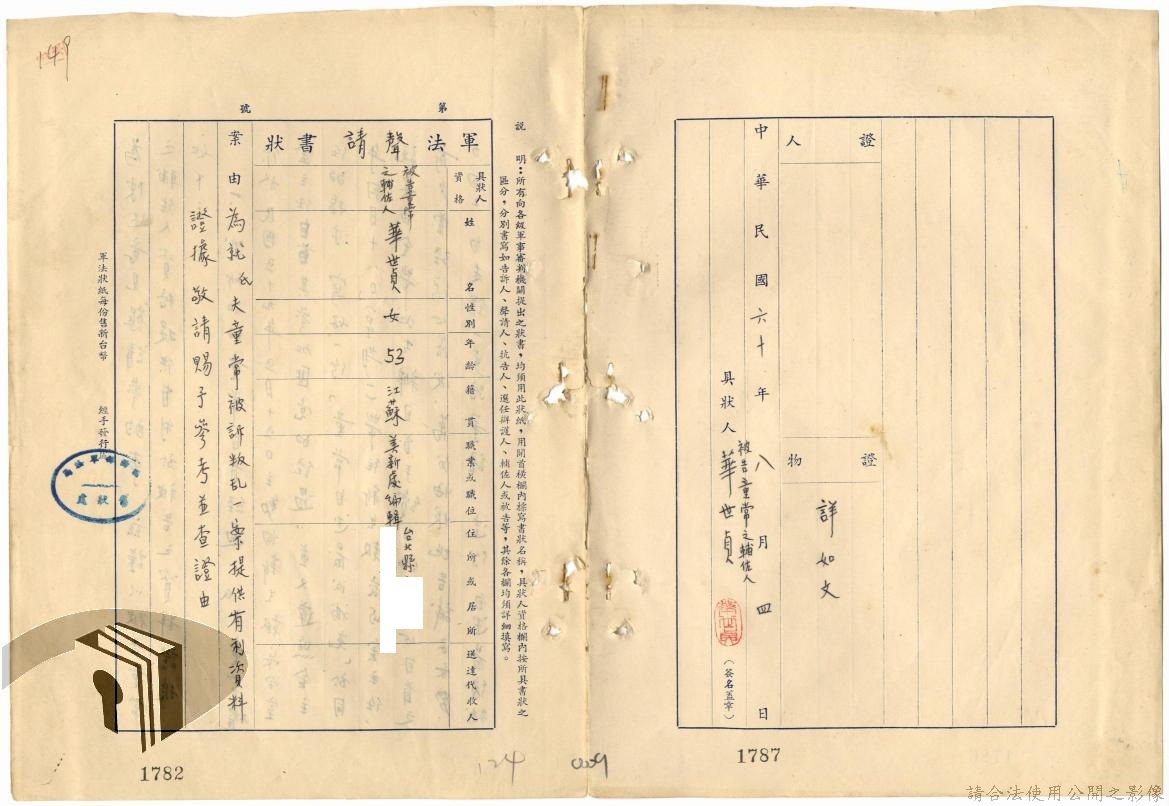 149
第 號
軍法聲請書狀
具狀人資格 姓名 性別 年齡 籍貫 職業或職位 住所或居所 送達代收人
被告童常之輔佐人 華世貞 女 53 江蘇 美新處編輯 台北縣
案由 為訴氏夫童常被訴叛乱案提供有利資料
證據敬請賜予參考並查證由
軍法狀紙每份售新台幣 經手發行
書狀處
1782
說明:所有向各級軍事審判機關提出之狀書,均須用此狀紙,用開首橫欄內標寫書狀名稱,具狀人資格欄內按所具書狀之
區分,分別書寫如告訴人、聲請人、抗告人、選任辯護人、輔佐人或被告等,其餘各欄均須詳細填寫。
124
證人
證物
詳如文
中華民國六十年八月四日
具狀人 被告童常之輔佐人 華世貞 (簽名蓋章)
1787
請合法使用公開之影像